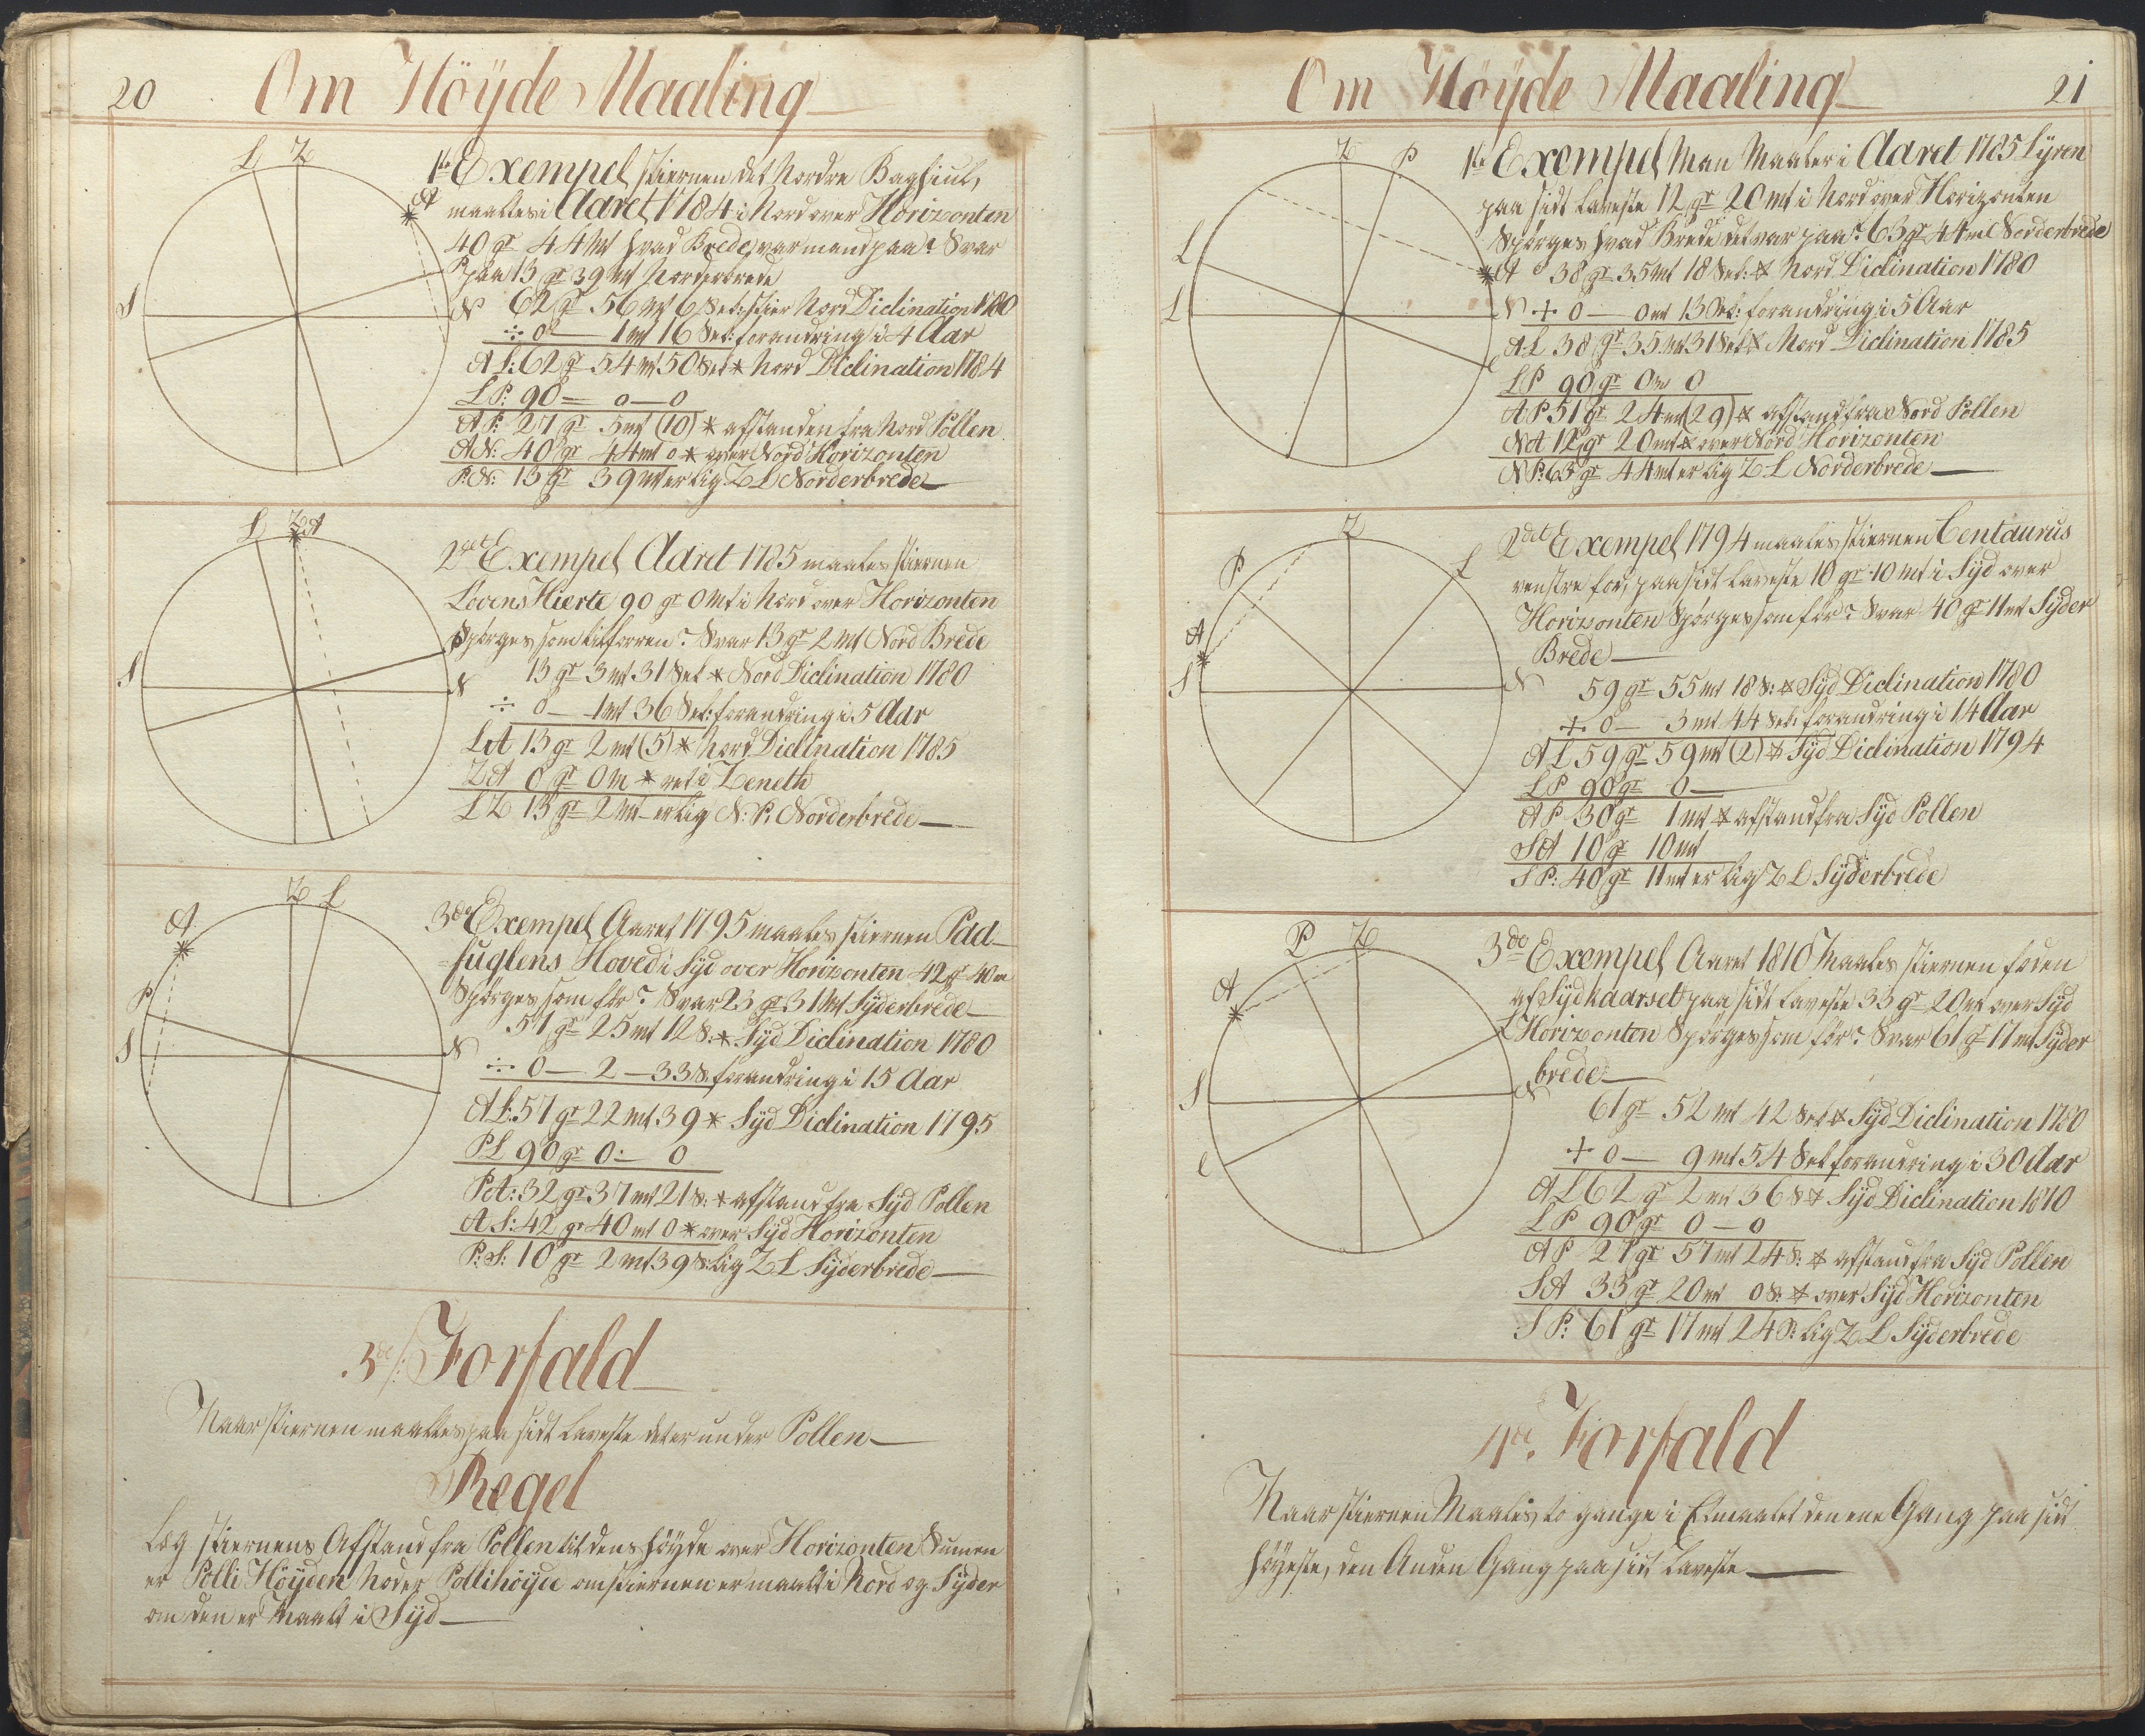 20 Om Höyde Maaling
L Z
A
S
N
1ste Exempel stiernen det Nordre Baghiul,
maaltes i Aaret 1784 i Nord over Horizonten
40 gr 44 mt hvad Brede var mand paa? Svar
paa 13 gr 39 mt Norderbrede
62 gr 56 mt 6 Sek: stier Nord Diclination 1780
÷ 0 — 1 mt 16 Sek: forandring i 4 Aar
A L: 62 gr 54 mt 50 Sek * Nord Diclination 1784
L P: 90 — 0 — 0
A P: 27 gr 5 mt (10) * afstanden fra Nord Pollen
A N: 40 gr 44 mt 0 * over Nord Horizonten
P: N: 13 gr 39 mt er lig Z L Norderbrede
L Z A
S
N
P
2det Exempel Aaret 1785 maales stiernen
Lövens Hierte 90 gr 0 mt i Nord over Horizonten
Spörges som tilforren? Svar 13 gr 2 mt Nord Brede
13 gr 3 mt 31 Sek * Nord Diclination 1780
÷ 0 — 1 mt 36 Sek: forandring i 5 Aar
L A 13 gr 2 mt (5) * Nord Diclination 1785
Z A 0 gr 0 m * ret i Zeneth
L Z 13 gr 2 mt er lig N: P: Norderbrede
Z L
A
P
S
N
3die Exempel Aaret 1795 maales stiernen Paa-
fuglens Hoved i Syd over Horizonten 42 gr 40 m
Spörges som för? Svar 23 gr 31 mt Syderbrede
57 gr 25 mt 12 S: * Syd Diclination 1780
÷ 0 — 2 — 33 S. forandring i 15 Aar
A L: 57 gr 22 mt 39 * Syd Diclination 1795
P L 90 gr 0: 0
P A: 32 gr 37 mt 21 S: * afstand fra Syd Pollen
A S: 42 gr 40 mt 0 * over Syd Horizonten
P: S: 10 gr 2 mt 39 S: lig Z L Syderbrede
3die Forfald
Naar stiernen maaltes paa sidt laveste det er under Pollen
Regel
Læg stiernens Afstand fra Pollen til dens höyde over Horizonten Summen
er Polli Höyden Noder Pollihöyde om stiernen er maalt i Nord og Syder
om den er maalt i Syd
Om Höyde Maaling 21
Z P
L
A
L
N
1ste Exempel Man Maaler i Aaret 1785 Lyren
paa sidt laveste 12 gr 20 mt i Nord over Horizonten
Spörges hvad Brede det var paa? 63 gr 44 m Norderbrede
38 gr 35 mt 18 Sek: * Nord Diclination 1780
+ 0 — 0 mt 13 Sek: forandring i 5 Aar
A L 38 gr 35 mt 31 Sek * Nord Diclination 1785
L P 90 gr 0 m 0
A P 51 gr 24 mt (29) * afstand fra Nord Pollen
N A 12 gr 20 mt * over Nord Horizonten
N P: 63 gr 44 mt er lig Z L Norderbrede
Z
P
L
A
S
N
2det Exempel 1794 maales stiernen Centaurus
venstre fod, paa sidt laveste 10 gr 10 mt i Syd over
Horizonten Spörges som för? Svar 40 gr 11 mt Syder
Brede
59 gr 55 mt 18 S: * Syd Diclination 1780
+ 0 — 3 mt 44 Sek: forandring i 14 Aar
A L 59 gr 59 mt (2) * Syd Diclination 1794
L P 90 gr 0
A P 30 gr 1 mt * afstand fra Syd Pollen
S A 10 gr 10 mt
S P: 40 gr 11 mt er lig Z L Syderbrede
P Z
A
L
S
N
3die Exempel Aaret 1810 Maales stiernen foden
af Sydkaarset paa sidt laveste 33 gr 20 mt over Syd
Horizonten Spörges som för? Svar 61 gr 17 mt Syder
brede
61 gr 52 mt 42 Sek * Syd Diclination 1780
+ 0 — 9 mt 54 Sek forandring i 30 Aar
A L 62 gr 2 mt 36 S * Syd Diclination 1810
L P 90 gr 0 — 0
A P 27 gr 57 mt 24 S: * afstand fra Syd Pollen
S A 33 gr 20 mt 0 S: * over Syd Horizonten
S P: 61 gr 17 mt 24 S: lig Z L Syderbrede
4de Forfald
Naar stiernen Maales to gange i Etmaalet den ene Gang paa sidt
höyeste, den Anden Gang paa sidt laveste